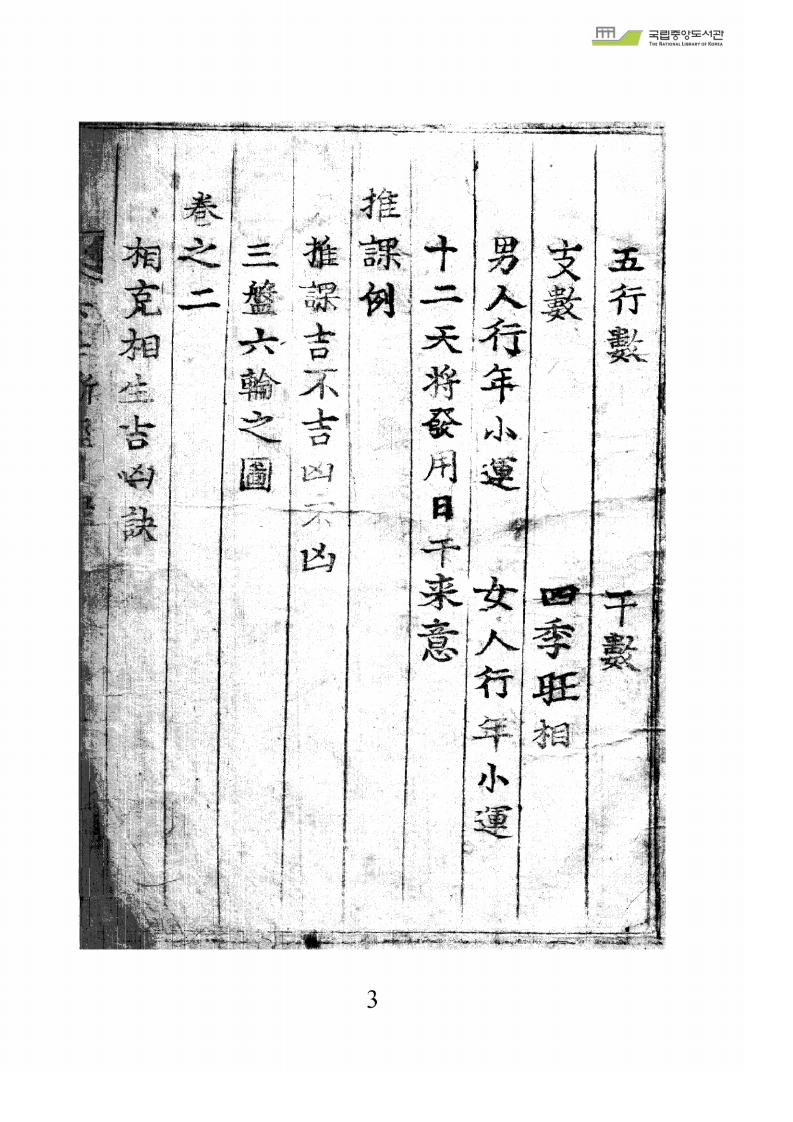 국립중앙도서관
THE NATIONAL LIBRARY OF KOREA
五行數 干數
支數 四季旺相
男人行年小運 女人行年小運
十二天将發用日干来意
推課例
推課吉不吉凶不凶
三盤六輪之圖
卷之二
相克相生吉凶訣
3